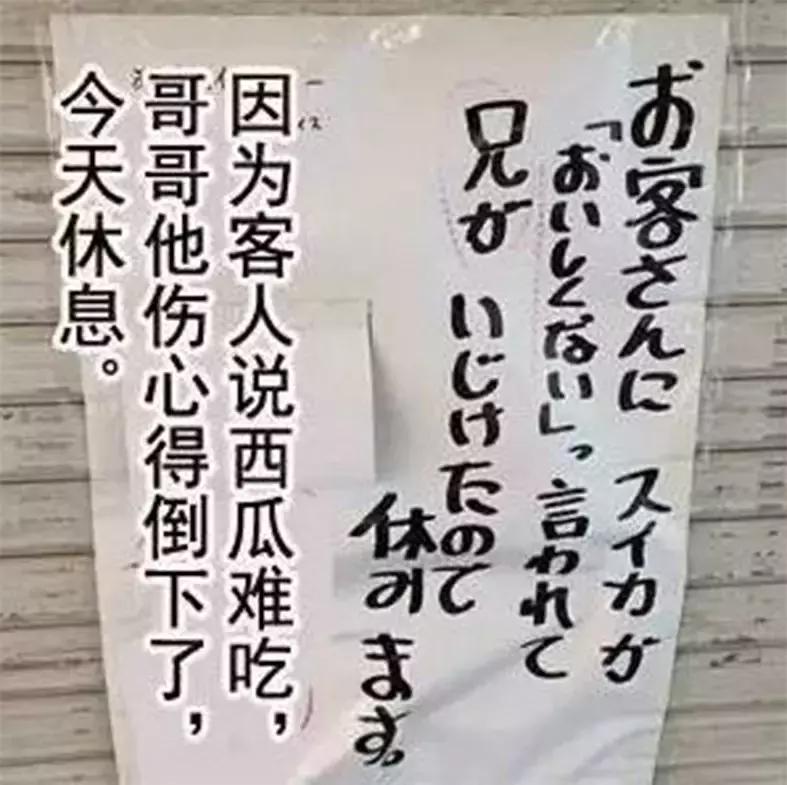 お客さんに スイカが
「おいしくない」って言われて
兄が いじけたので
休みます。
因为客人说西瓜难吃，
哥哥他伤心得倒下了，
今天休息。